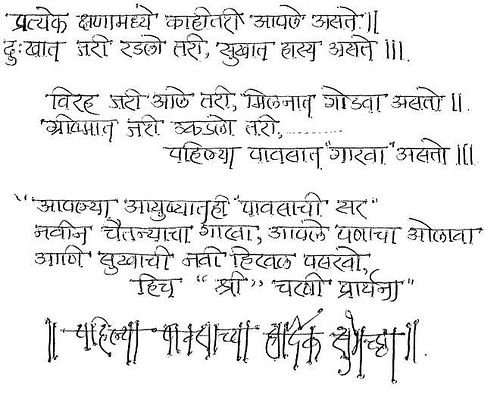 प्रत्येक क्षणामध्ये काहीतरी आपले असते ||
दुःखात जरी रडलो तरी, सुखात हास्य असते |||
विरह जरी आले तरी, मिलनात गोडवा असतो ||
ग्रीष्मात जरी उकडलो तरी, ..............
पहिल्या पावसात "गारवा" असतो |||
"आपल्या आयुष्यातही "पावसाची सर"
नवीन चैतन्याचा गारवा, आपले पणाचा ओलावा
आणि सुखाची नवी हिरवळ पसरवो,
हिच "श्री" चरणी प्रार्थना"
|| पहिल्या पावसाच्या हार्दिक शुभेच्छा ||